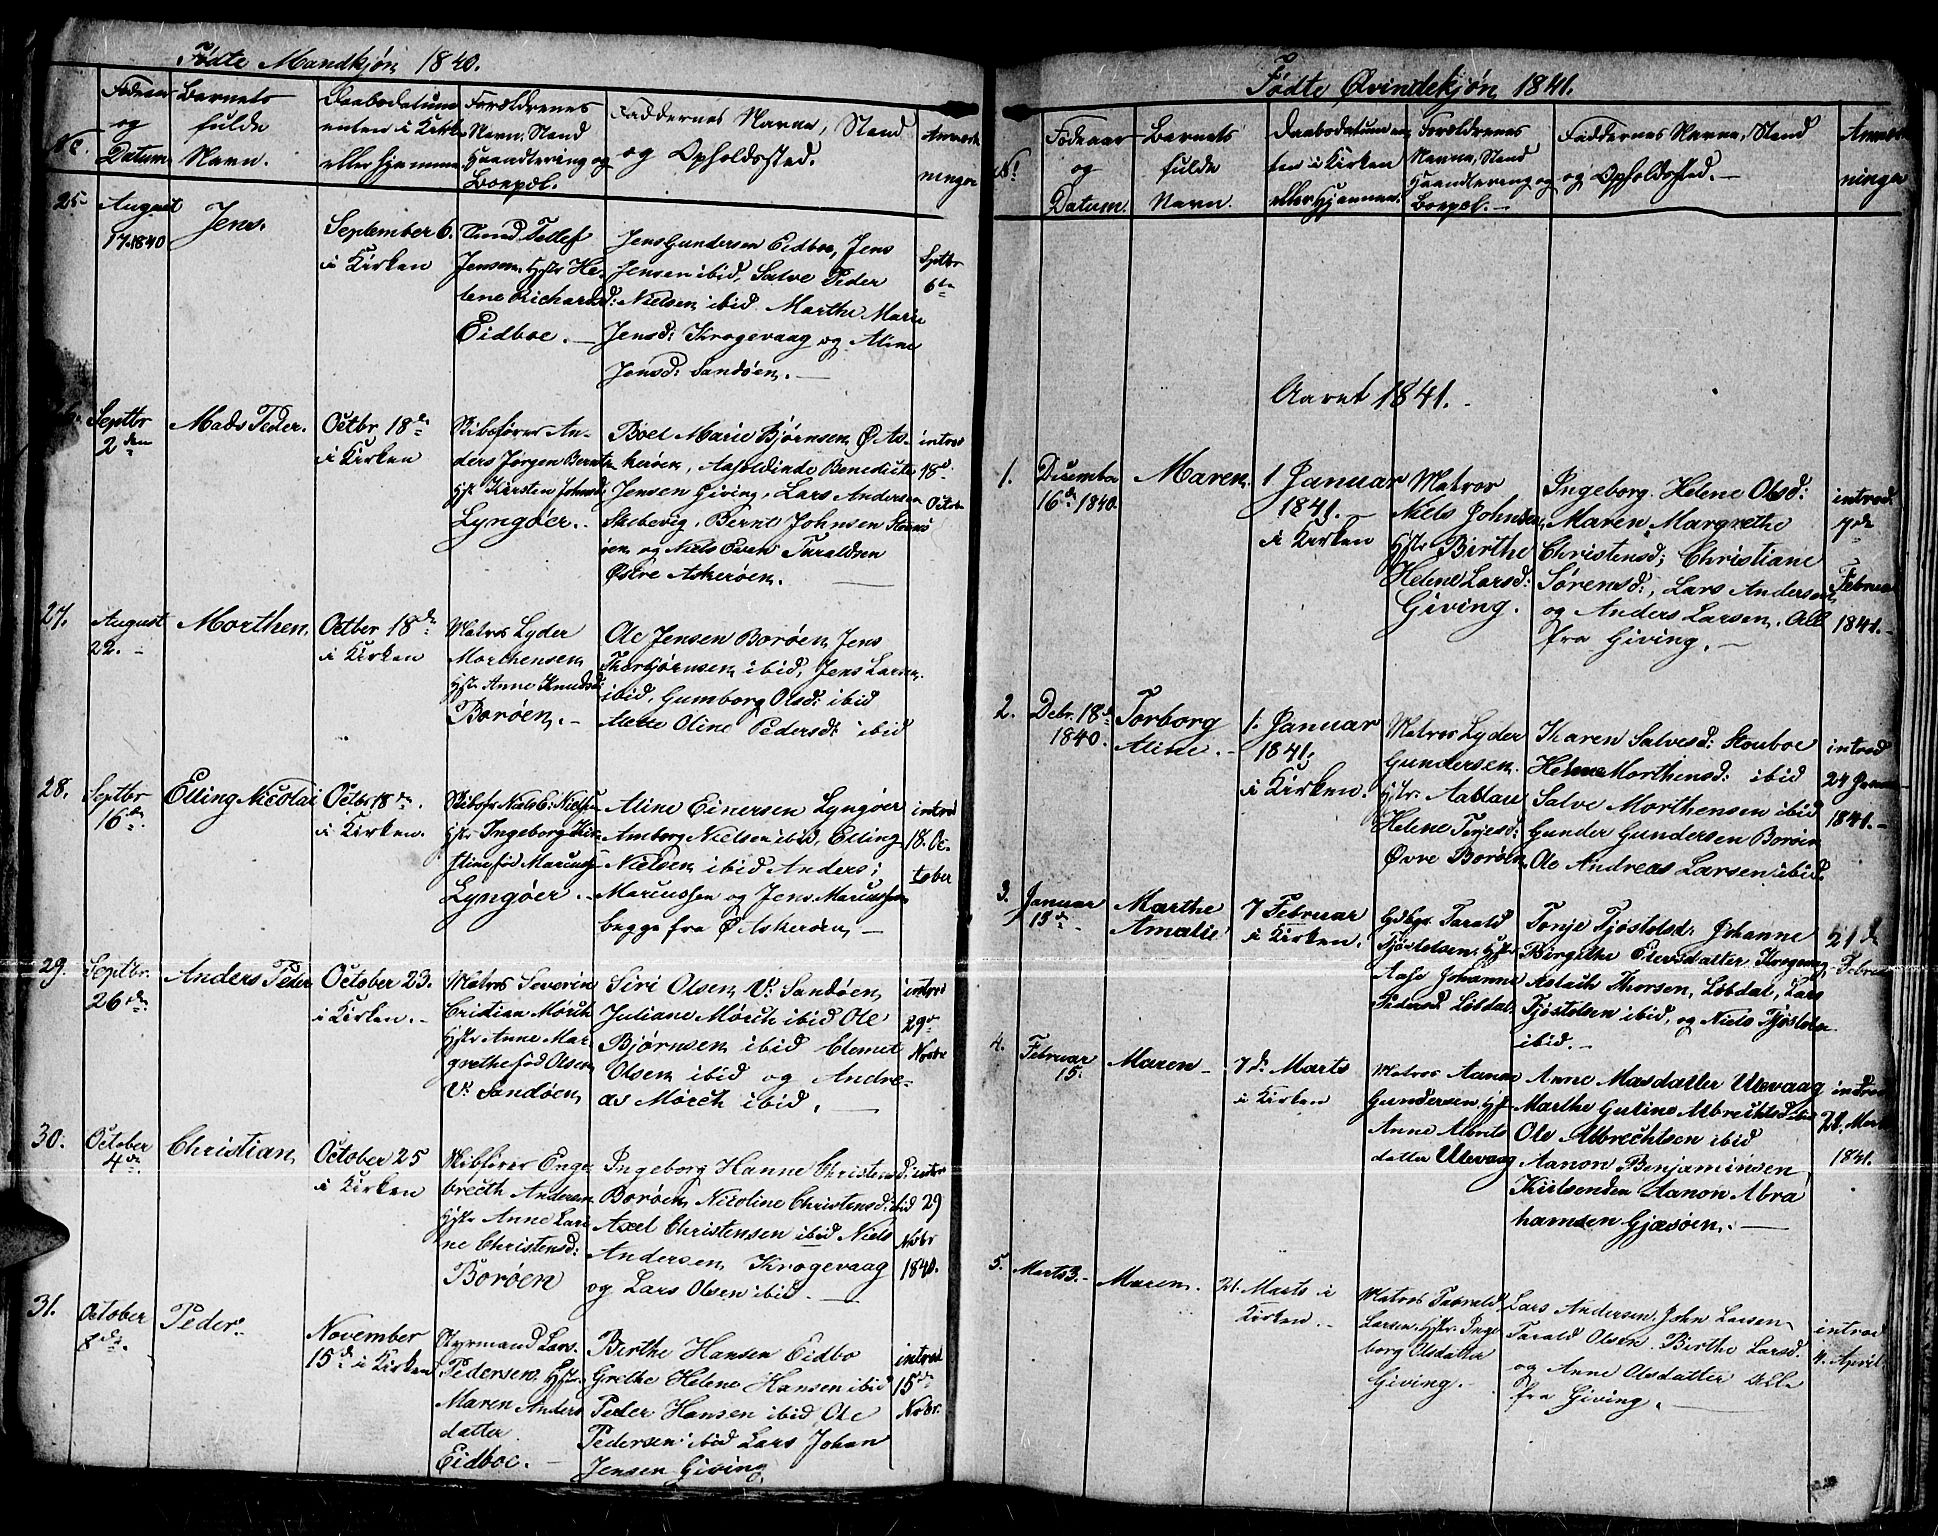 Fødte Mandkjøn 1840.
No.
Fødeaar og Datum
Barnets fulde Navn.
Daabsdatum enten i Kirke eller Hjemme
Forældrenes Navn, Stand Haandtering og Boepæl.
Faddernes Navne, Stand og Opholdssted.
Anmerkninger
25
August
17. 1840
Jens.
September 6.
i Kirken
Detlef
Jensen, Hstr He-
lene Richardsd:
Eidboe. —
Jens Gundersen Eidboe, Jens
Jensen ibid, Salve Peder
Nielsen ibid Marthe Marie
Jensd: Krogevaag og Aline
Jensd: Sandøen. —
Septbr
6te
Septbr
2den
Mads Peder.
Octbr 18de
i Kirken
Skibsfører An-
ders Jørgen Berntsn
Hstr Kirsten Johnsd:
Lyngøer.
Boel Marie Bjørnsen, Ø As-
kerøen, Aasoldinde Benedicte
Jensen Giving, Lars Andersen
Skebevig, Bernt Johnsen
og Niels Even Taraldsen
Østre Askerøen. —
introd
18d.
Octbr
27.
August
22. -
Morthen.
Octbr 18de
i Kirken
Matros Lyder
Morthensen
Hstr Anne Knudsd:
Borøen. -
Ole Jensen Borøen, Jens
Thorbjørnsen ibid, Jens Larsen
ibid, Gumborg Olsd: ibid
Mette Oline Pedersd: ibid
28.
Septbr
16de
Elling Nicolai
Octbr 18de.
i Kirken.
Skibsfr Niels E: Nielsen
Hstr Ingeborg Kir-
stine fød Marcussen
Lyngøer.
Aline Einersen Lyngøer
Amborg Nielsen ibid, Elling
Nielsen ibid Anders
Marcussen og Jens Marcussen
begge fra Ø Askerøen —
introd
18. Oc-
tober
29.
Septbr.
26de.
Anders Peder
October 23.
i Kirken. -
Matros Severin
Cristian Mörch
Hstr Anne Mar-
grethe fød Olsen
V: Sandøen
Siri Olsen, V: Sandøen,
Juliane Mörch ibid Ole
Bjørnsen ibid Clemet
Olsen ibid og Andre-
as Mörch ibid. —
introd
29de
Novbr
30.
October
4de.
Christian
October 25
i Kirken
Skibfører Enge-
brecth Andersen
Hstr Anne Lari-
ne Christensd:
Borøen
Ingeborg Hanne Christensd:
Borøen, Nicoline Christensd: ibid
Axel Christensen ibid Niels
Andersen Krogevaag
og Lars Olsen ibid. —
intr
29
Novbr
1840.
31.
October
8de.
Peder.
November
15de i Kirken
Styrmand Lars
Pedersen, Hstr
Maren Anders
datter
Eidboe. -
Birthe Hansen Eidbo
Grethe Helene Hansen ibid
Peder Hansen ibid, Ole
Pedersen ibid Lars Johan
Jensen Giving
introd
15de
Novbr.
Fødte Qvindekjøn 1841.
No
Fødeaar og Datum.
Barnets fulde Navn.
Daabsdatum en ten i Kirken eller Hjemme.
Forældrenes Navne, Stand Haandtering og Boepæl. —
Faddernes Navne, Stand og Opholdssted. —
Anmerkninger
Aaret 1841. -
1.
Decembr
16de 1840.
Maren
1 Januar
1841. -
i Kirken
Matros
Niels Johnsen,
Hstr Birthe
Helene Larsd:
Giving.
Ingeborg Helene Olsd:
Maren Margrethe
Christensd; Christiane
Sørensd:, Lars Andersen
og Anders Larsen. Alle
fra Giving. —
introd.
7de
Februar
1841. -
2.
Debr. 18de
1840.
Torborg
Aline. -
1. Januar
1841.
i Kirken.
Matros Lyder
Gundersen
Hstr. Aaslau
Helene Terjesd:
Øvre Borøen
Karen Salvesd: Stouboe
Helene Morthensd: ibid
Salve Morthensen ibid
Gunder Gundersen Borøen
Ole Andreas Larsen ibid.
introd
24 Januar
1841. -
3.
Januar
15de -
Marthe
Amalie
7 Februar
i Kirken.
Gdbgr Tarald
Tjøstolsen, Hstr
Aase Johanne
Pedersd Løbdal
Tonje Tjøstolsd: Johanne
Birgithe Elevsdatter Krogevaag
Aslach Thorsen, Løbdal, Lars
Tjøstolsen ibid, og Niels Tjøstolsn
ibid. -
21de
Februar
4.
Februar
15.
Maren -
7d. Marts
i Kirken
Matros Aanon
Gundersen, Hstr
Anne Albrits
datter Ulevaag
Anne Masdatter Ulevaag
Marthe Gutine Albrechtsd ibid
Ole Albrechtsen ibid
Aanon Benjaminsen
Kiilsenden Aanon Abra
hamsen Gjæsøen. —
introd
28. Marts
1841.
5.
Marts 3. -
Maren.
21. Marts i
Kirken. -
Matros Tarald
Larsen, Hstr. Inge
borg Olsdatter
Giving. -
Lars Andersen, John Larsen
Tarald Olsen. Birthe Larsd:
og Anne Olsdatter Alle
fra Giving. -
introd
4. April